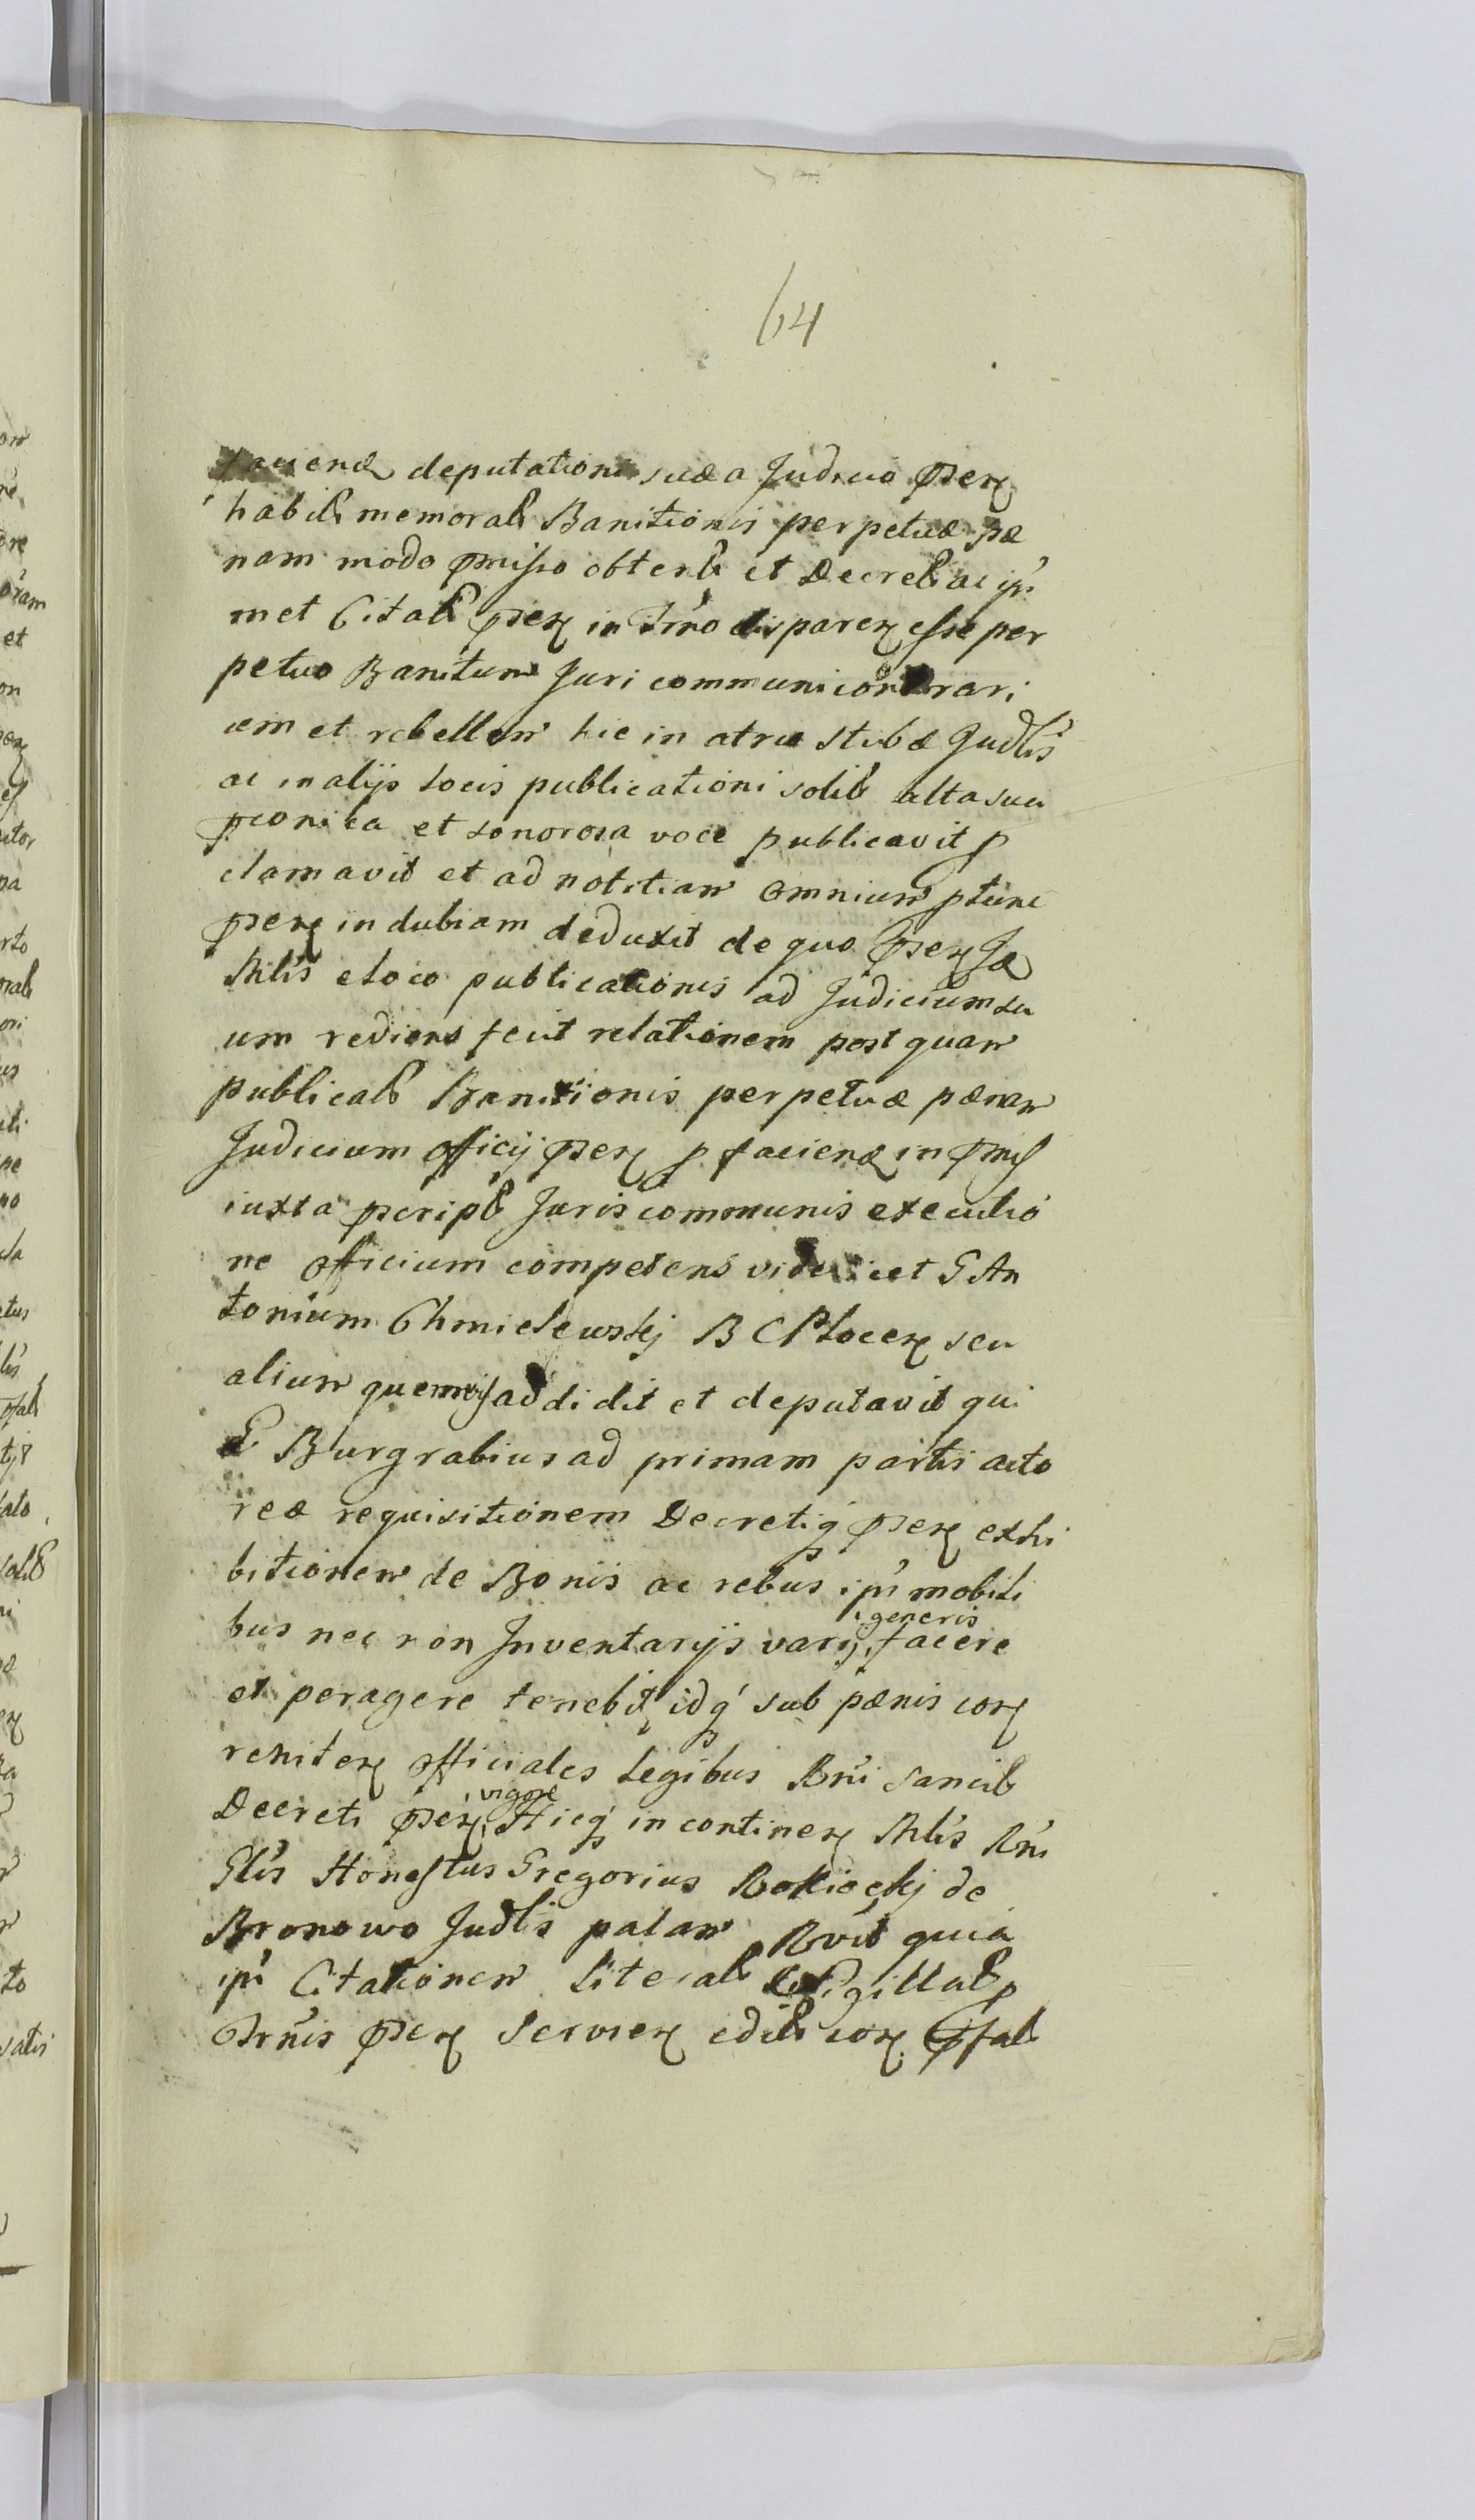 64
faciend deputationi suæ a Judicio pñ
habit memorat Banitionis perpetuæ pæ
nam modo pmisso obtent et Decret ac ip̃i
met Citat pñ in Trño disparen esse per
petuo Banitum Juri communi contrari
um et rebellem hic in atrio stubæ Judlis
ac in alijs locis publicationi solit alta sua
pconica et sonorosa voce publicavit p
clamavit et ad notitiam omnium ptunc
pñ indubiam deduxit de quo pñ Ja
Mlis e loco publicationis ad Judicium su
um rediens fecit relationem post quam
publicat Banitionis perpetuæ pænam
Judicium officij pñ p faciend in pmis
iuxta pscript Juris communis executio
ne officium competens videlicet G An
tonium Chmielewskj B C Plocen seu
alium quemvis addidit et deputavit qui
G Burgrabius ad primam partis acto
reæ requisitionem Decretiq pñ exhi
bitionem de Bonis ac rebus ip̃i mobili
bus nec non Inventarijs varij generis facere
et peragere tenebit idq sub pænis con
reniten officiales legibus Rñi sancit
Decreti pñ vigore Hicq in continen Mlis Rñi
Glis Honestus Gregorius Rokiockj de
Bronowo Judlis palam Rvit quia
ip̃i Citationem literat et sigillat p
Trñis pñ servien edit con pfat